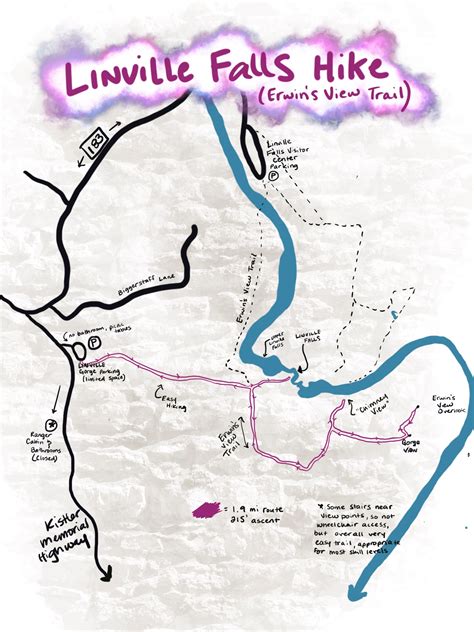 LINVILLE FALLS HIKE
(ERWIN'S VIEW TRAIL)
183
Linville
Falls Visitor
Center
Parking
P
Biggerstaff Lane
Erwin's View Trail
no bathroom, picnic
tables
P
LINVILLE
Gorge Parking
(limited space)
Upper
Linville
Falls
LINVILLE
FALLS
Easy
Hiking
"Chimney
View"
Erwin's
View
Overlook
Gorge
View
Erwin's
View
Trail
Ranger
Cabin &
Bathrooms
(closed)
Kistler
Memorial
Highway
= 1.9 mi route
215' ascent
* Some stairs near
View points, so not
wheelchair access,
but overall very
easy trail, appropriate
for most skill levels